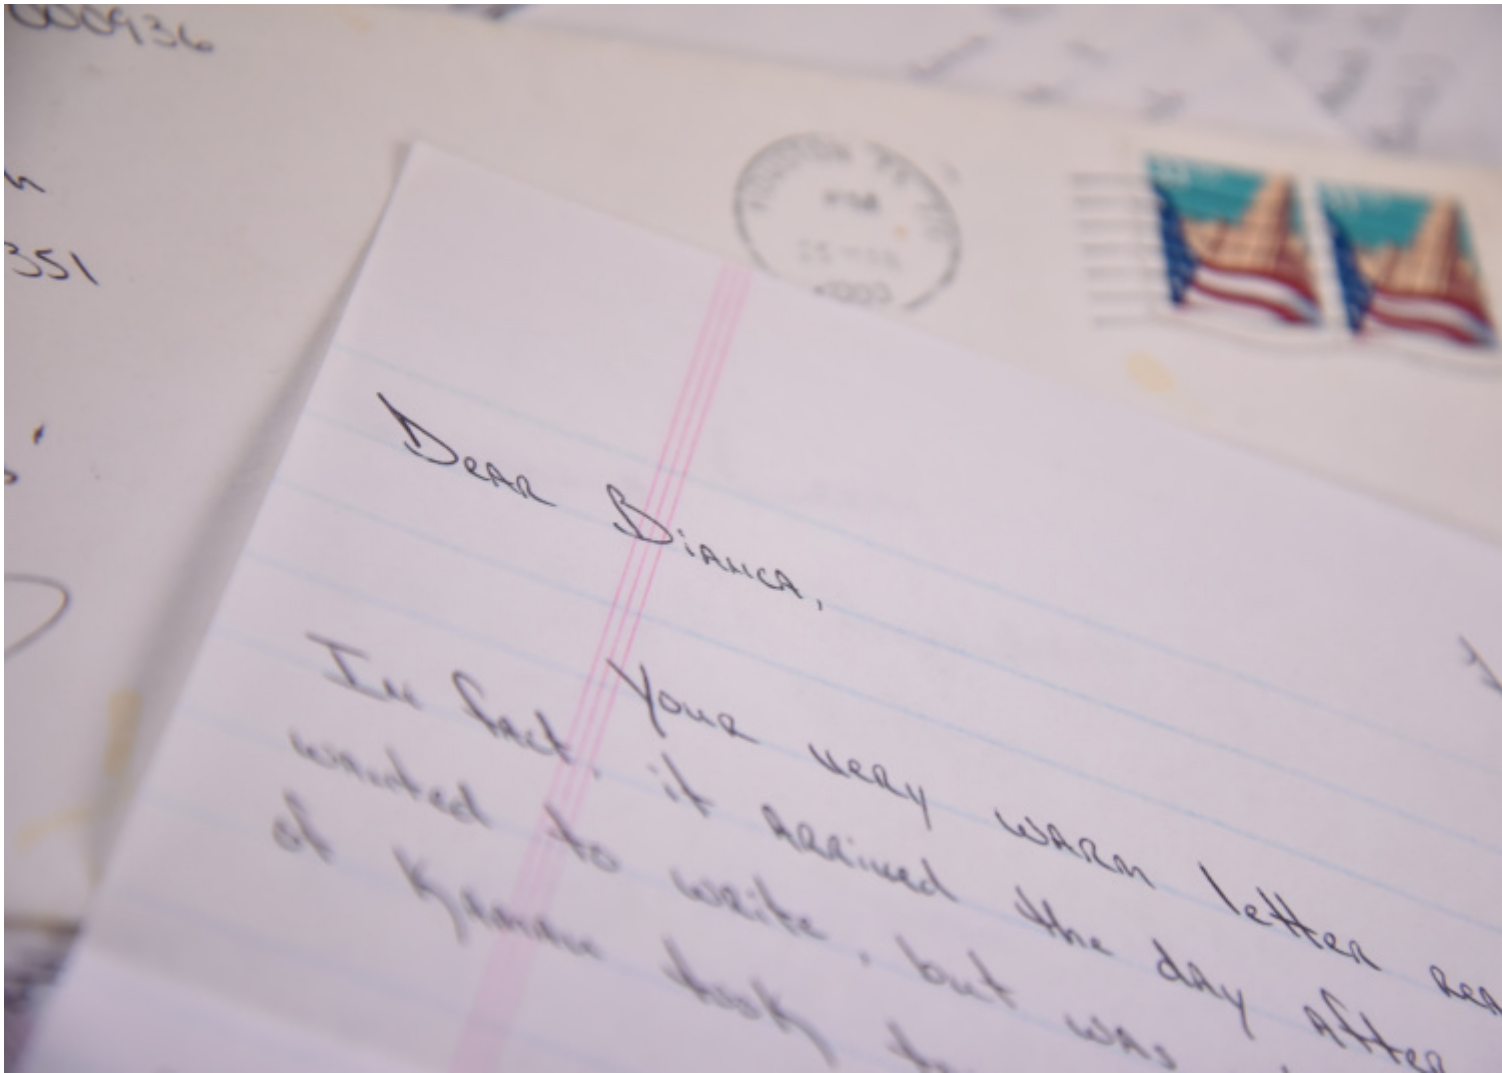 000936
351
Dear Bianca,
Your very warm letter rea
In fact, it arrived the day after
wanted to write, but was
of Kamau took to